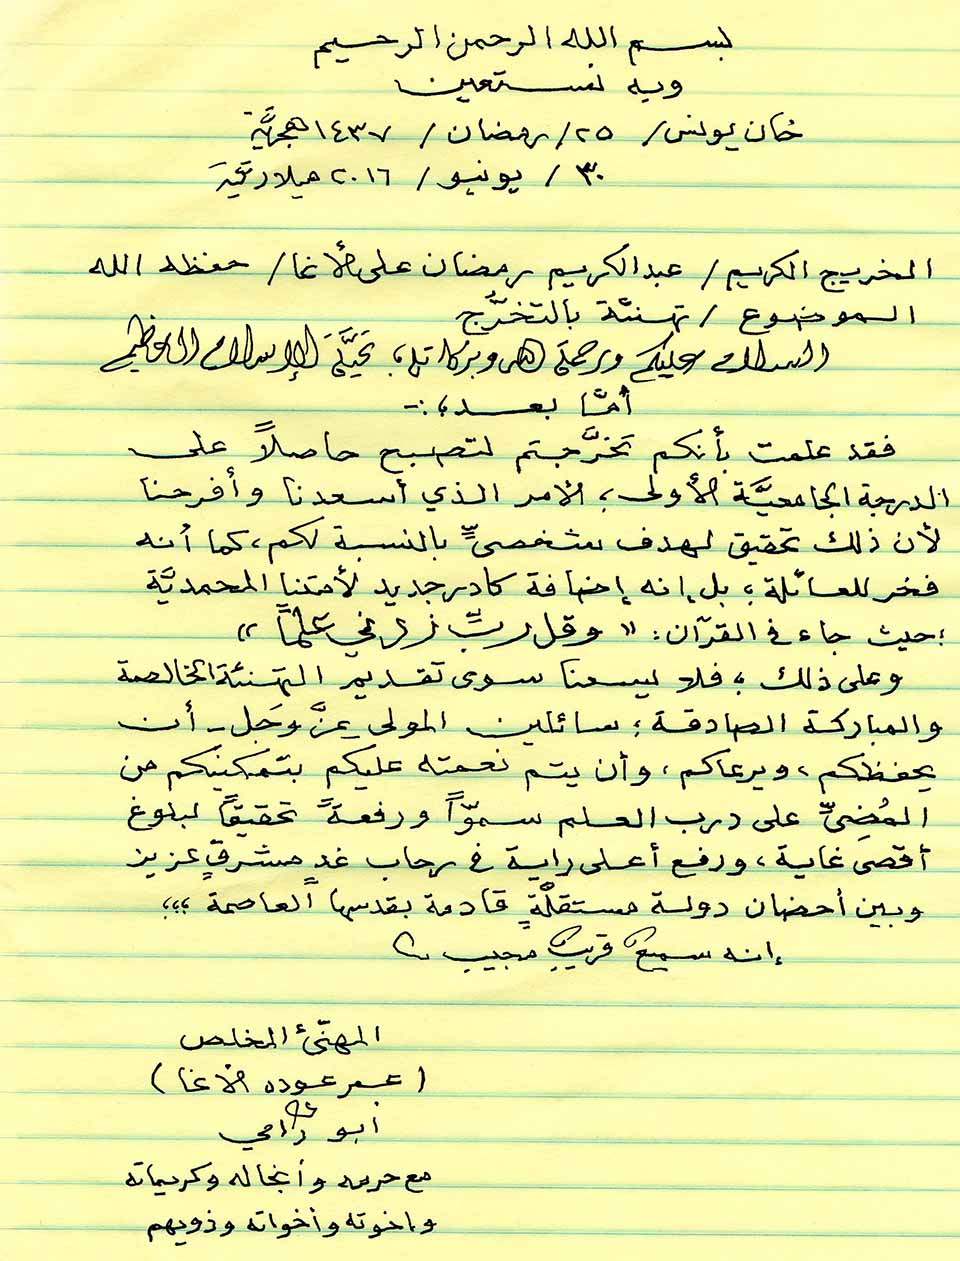 بسم الله الرحمن الرحيم
وبه نستعين
خان يونس/ ٢٥/ رمضان/ ١٤٣٧هجريَّة
٣٠/ يونيو/ ٢٠١٦ ميلاديَّة
الخريج الكريم/ عبد الكريم رمضان علي الأغا/ حفظه الله
الموضوع / تهنئة بالتخرُّج
السلام عليكم ورحمة الله وبركاته، تحيَّة الإسلام العظيم
أمَّا بعد،:-
فقد علمت بأنكم تخرَّجتم لتصبح حاصلاً على
الدرجة الجامعيَّة الأولى، الأمر الذي أسعدنا وأفرحنا
لأن ذلك تحقيق لهدف شخصيٍّ بالنسبة لكم، كما أنه
فخر للعائلة؛ بل إنه إضافة كادر جديد لأمتنا المحمديَّة
؛حيث جاء في القرآن: "وقل ربِّ زدني علمًا"
وعلى ذلك؛ فلا يسعنا سوى تقديم التهنئة الخالصة
والمباركة الصادقة؛ سائلين المولى عزَّ وجَل- أن
يحفظكم، ويرعاكم، وأن يتم نعمته عليكم بتمكينكم من
المُضِيِّ على درب العلم سموّاً ورفعةً تحقيقاً لبلوغ
أقصى غاية، ورفع أعلى راية في رحاب غدٍ مشرقٍ عزيز
وبين أحضان دولة مستقلَّةٍ قادمة بقدسها العاصمة ،،،
إنه سميع قريب مجيب
المهنّئ المخلص
(عمر عوده الأغا)
أبو رامي
مع حرمه وأنجاله وكريماته
وإخوته وأخواته وذويهم